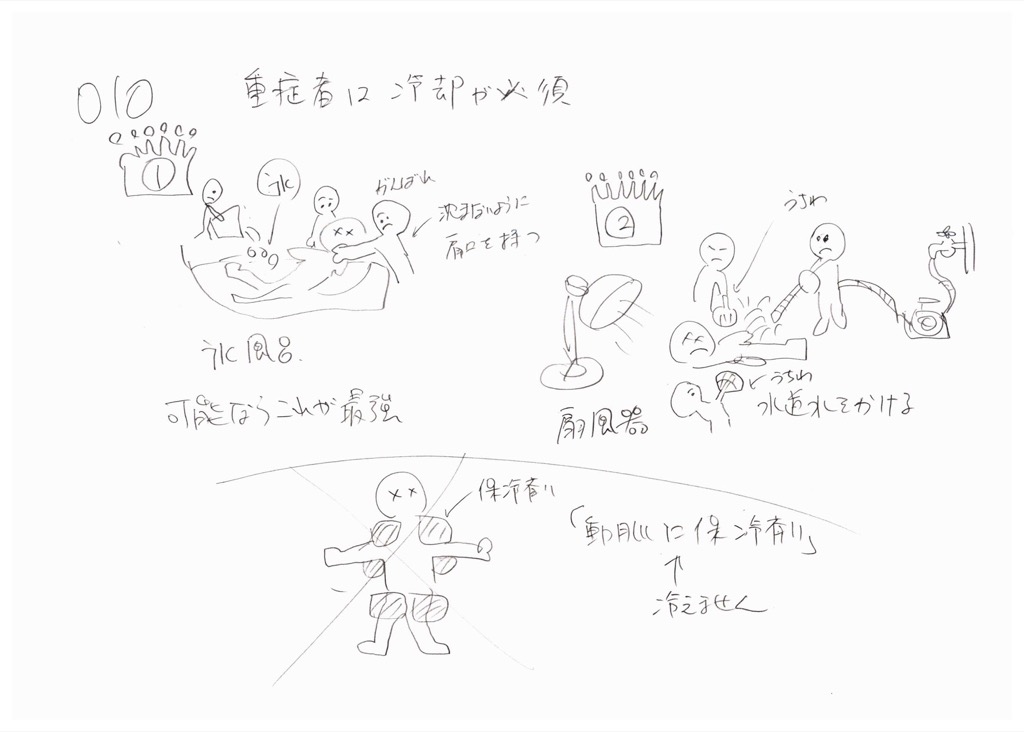 010
重症者は冷却が必須
①
氷
がんばれ
沈まないように
肩口を持つ
氷風呂
可能ならこれが最強
②
うちわ
うちわ
水道水をかける
扇風器
保冷剤
「動脈に保冷剤」
↑
冷えません